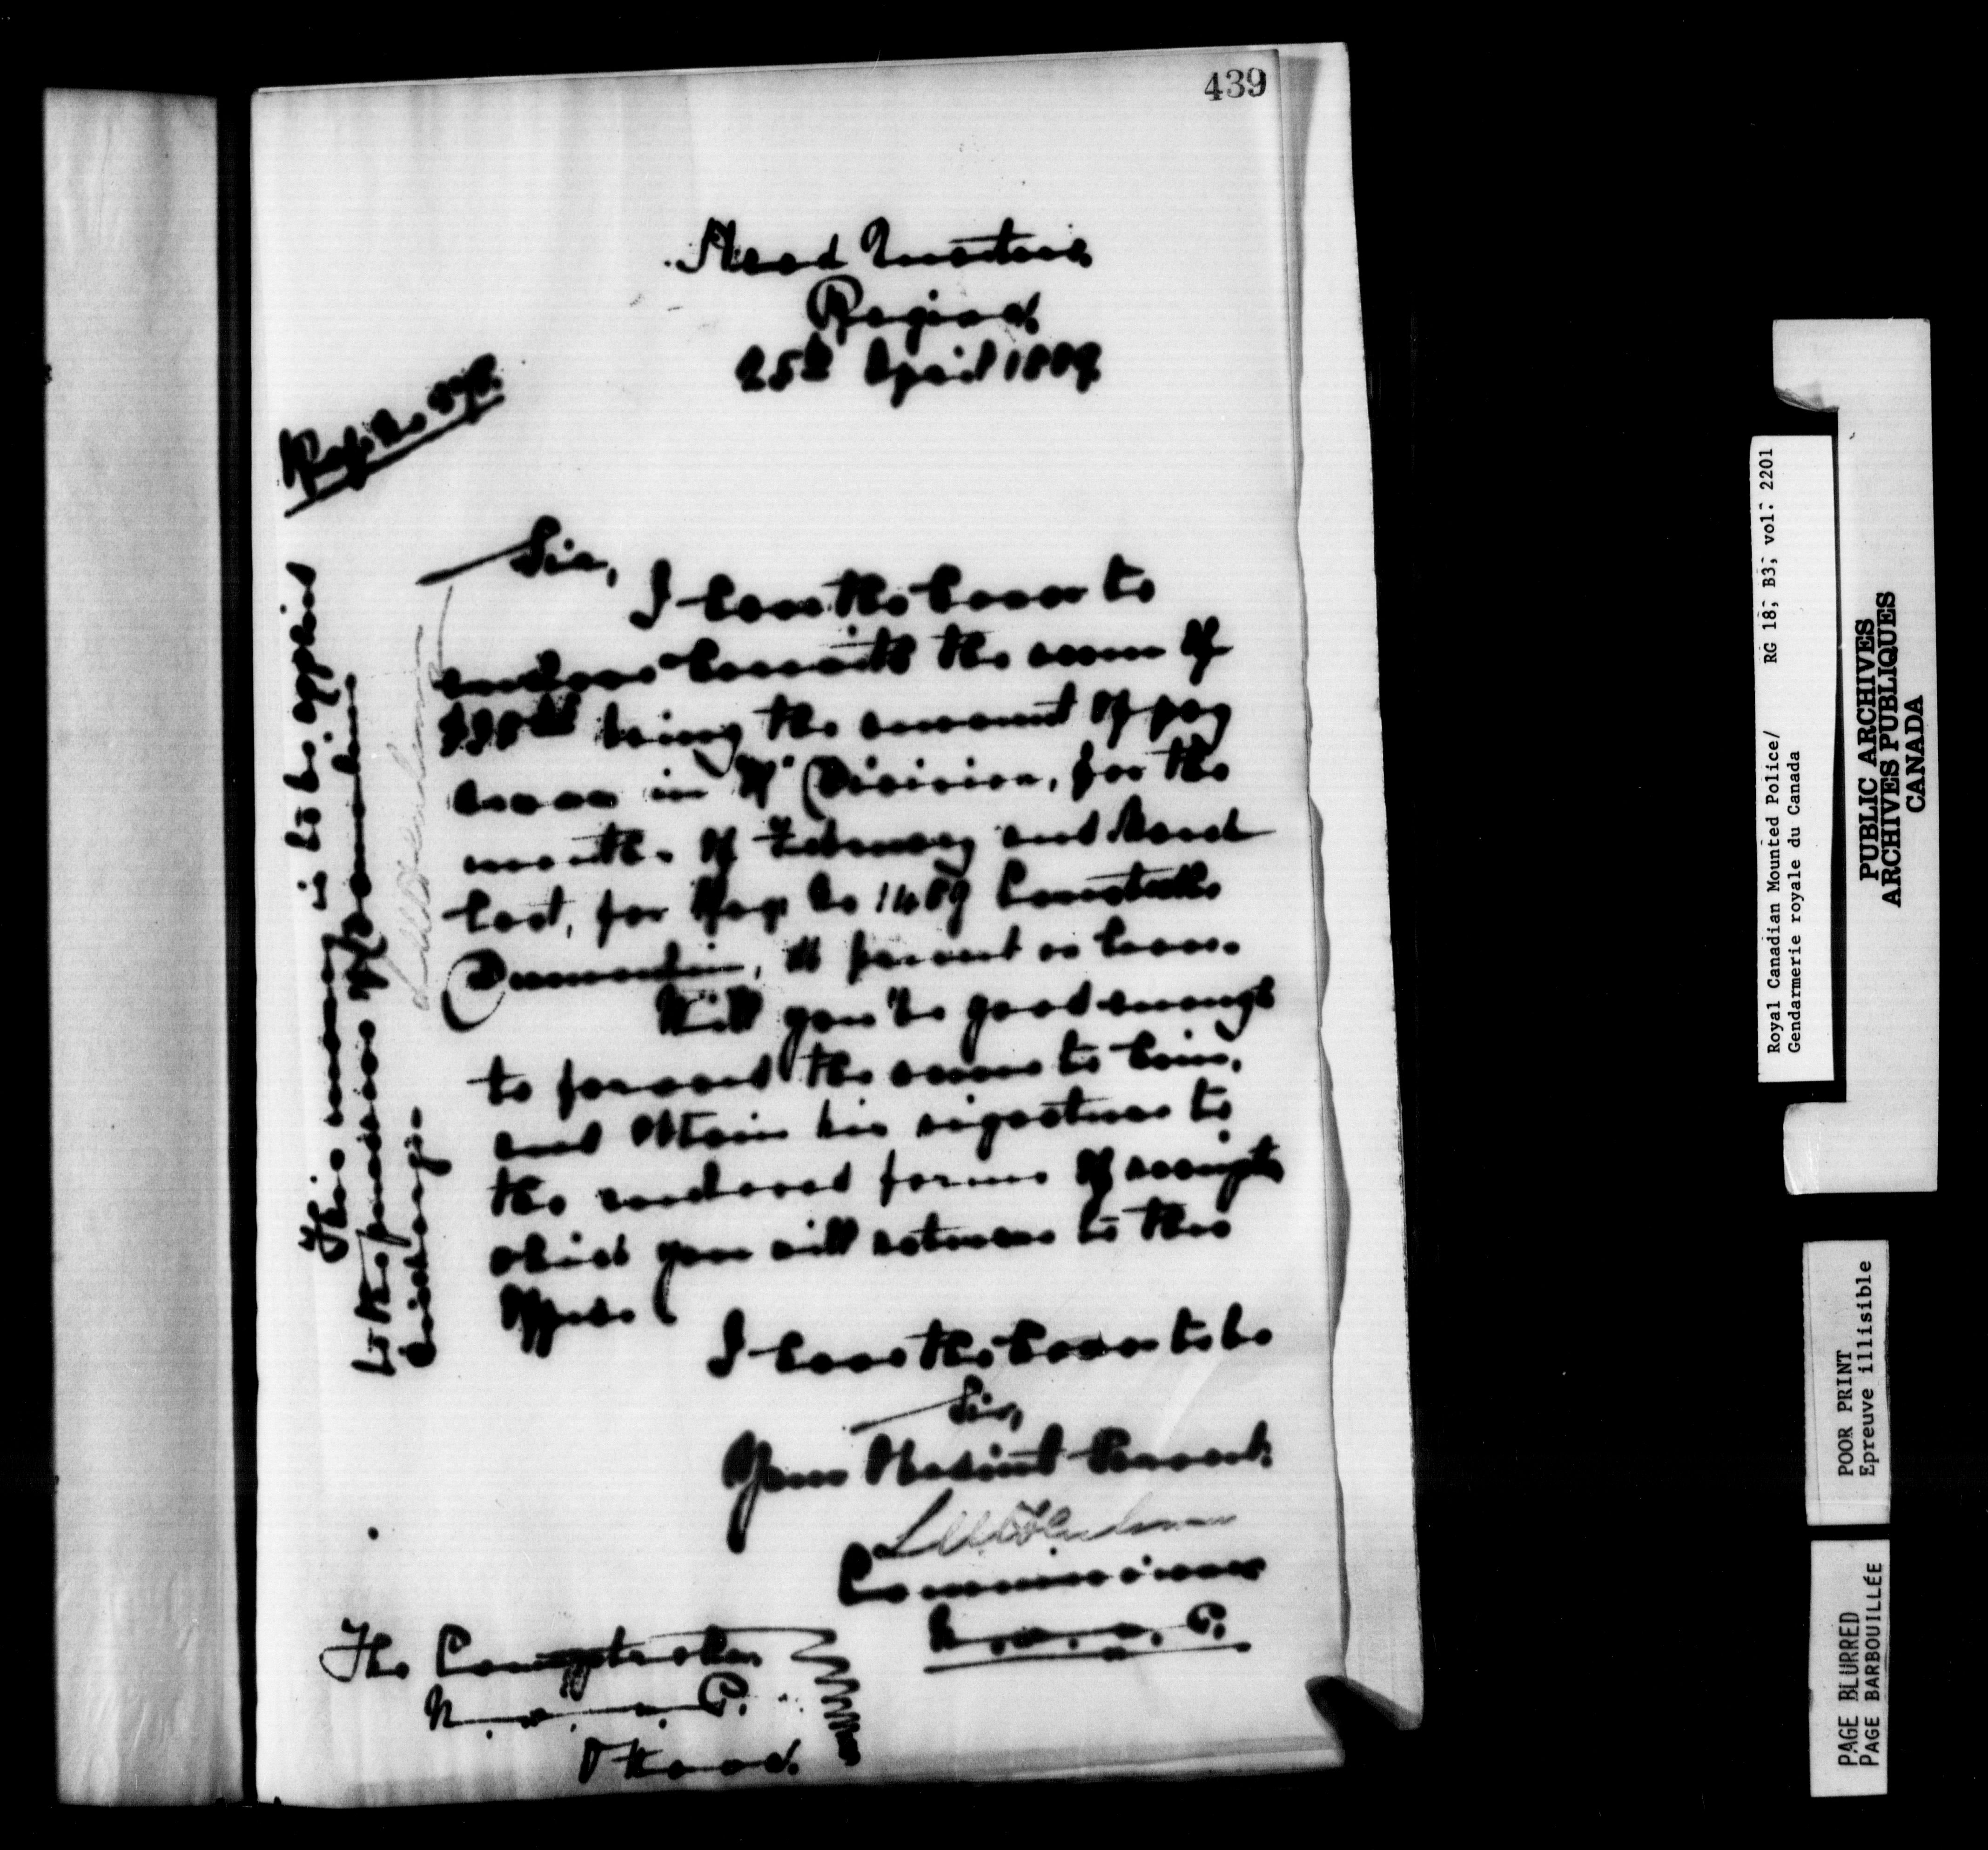 439
Head Quarters
Regina.
25th April 1889
Sir,
I have the honor to
enclose herewith the sum of
being the amount of pay
drawn in Division, for the
months of February and March
last, for Reg. No 1489 Constable
at present on leave.
Will you be good enough
to forward the same to him,
and obtain his signature to
the enclosed forms of receipt
which you will return to this
Office
I have the honor to be
Sir,
Your Obedient Servant.
Commissioner
N.W.M.P.
The Comptroller
N.W.M.P.
Ottawa.
This money is to be applied
to the purchase of
discharge.
Royal Canadian Mounted Police/ RG 18; B3; vol: 2201
Gendarmerie royale du Canada
PUBLIC ARCHIVES
ARCHIVES PUBLIQUES
CANADA
POOR PRINT
Epreuve illisible
PAGE BLURRED
PAGE BARBOUILLÉE